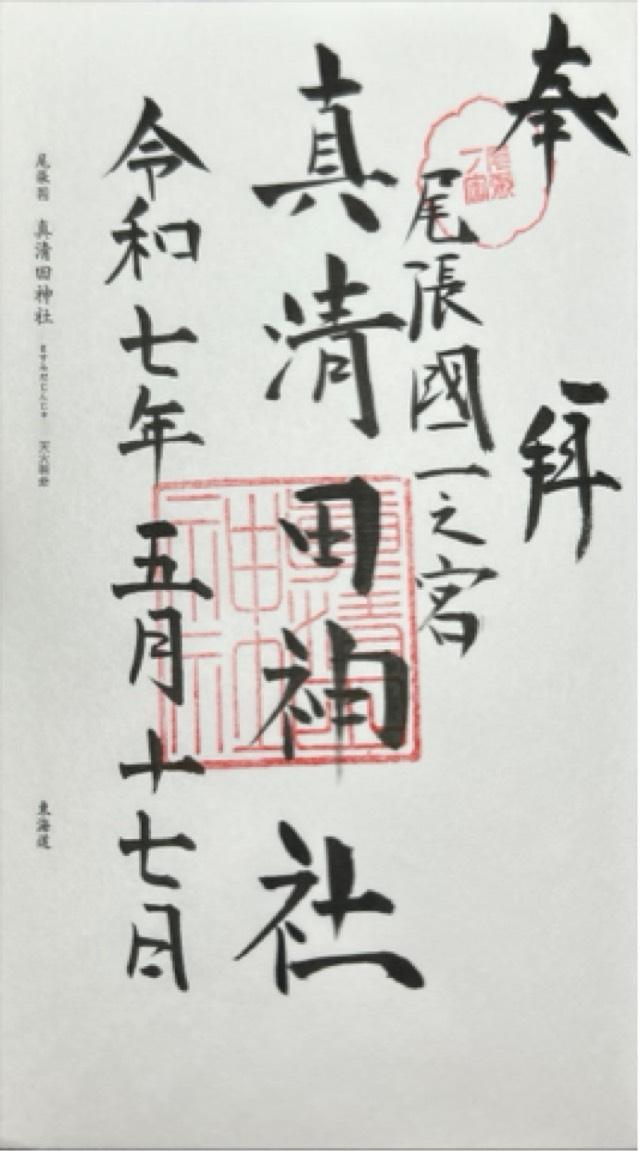 奉拝
尾張國一之宮
真清田神社
令和七年五月十七日
尾張国 真清田神社 ますみだじんじゃ 天火明命
東海道
尾張
一宮
真清田
神社